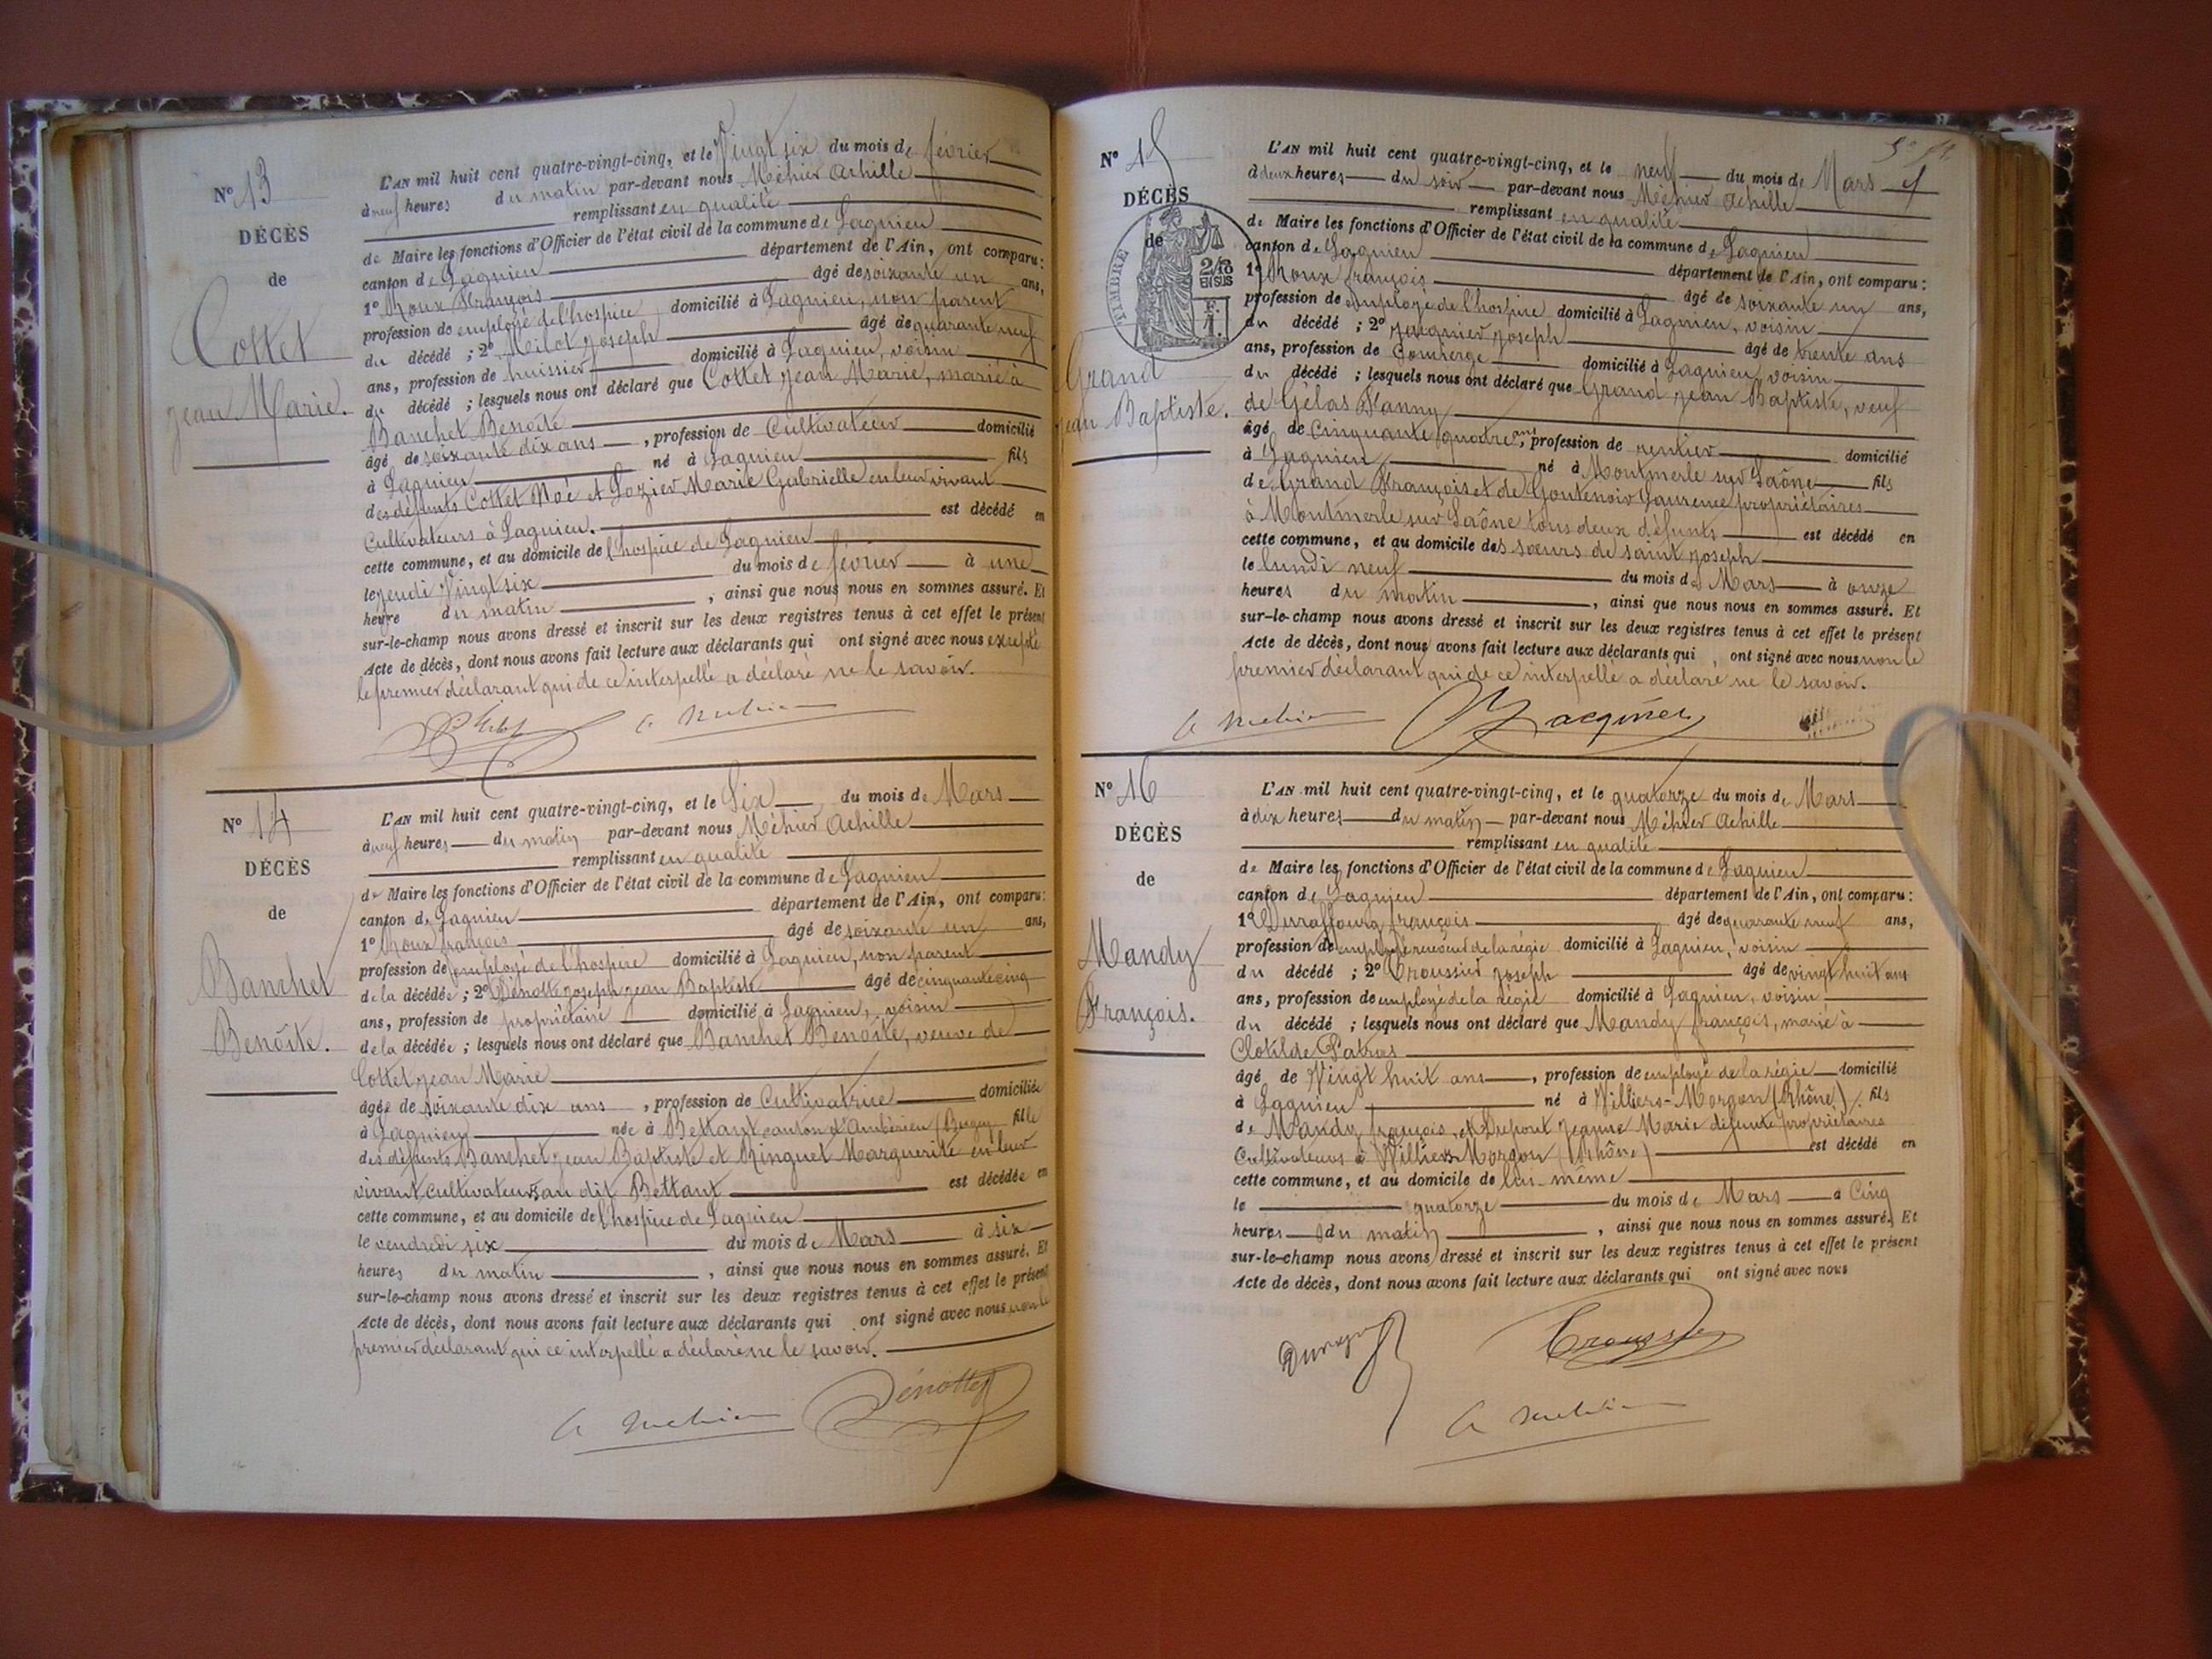 N° 13
DÉCÈS
de
Cottet
Jean Marie.
L'AN mil huit cent quatre-vingt-cinq, et le Vingt six du mois de février
à neuf heures du matin par-devant nous Méhier Achille
remplissant en qualité
de Maire les fonctions d'Officier de l'état civil de la commune de Lagnieu
canton de Lagnieu département de l'Ain, ont comparu:
1° Roux François âgé de soixante un ans,
profession de employé de l'hospice domicilié à Lagnieu, non parent
du décédé ; 2° Milot Joseph âgé de quarante neuf
ans, profession de huissier domicilié à Lagnieu, voisin
du décédé ; lesquels nous ont déclaré que Cottet Jean Marie, marié à
Banchet Benoîte
âgé de soixante dix ans , profession de Cultivateur domicilié
à Lagnieu né à Lagnieu fils
des défunts Cottet Noé et Lozier Marie Gabrielle en leur vivant
Cultivateurs à Lagnieu. est décédé en
cette commune, et au domicile de l'hospice de Lagnieu
le jeudi Vingt six du mois de février à une
heure du matin , ainsi que nous nous en sommes assuré. Et
sur-le-champ nous avons dressé et inscrit sur les deux registres tenus à cet effet le présent
Acte de décès, dont nous avons fait lecture aux déclarants qui ont signé avec nous excepté
le premier déclarant qui de ce interpellé a déclaré ne le savoir.
A Mehier
N° 14
DÉCÈS
de
Banchet
Benoîte.
L'AN mil huit cent quatre-vingt-cinq, et le Six du mois de Mars
à neuf heures du matin par-devant nous Méhier Achille
remplissant en qualité
de Maire les fonctions d'Officier de l'état civil de la commune de Lagnieu
canton de Lagnieu département de l'Ain, ont comparu:
1° Roux François âgé de soixante un ans,
profession de employé de l'hospice domicilié à Lagnieu, non parent
de la décédée ; 2° Dénotte Joseph Jean Baptiste âgé de cinquante cinq
ans, profession de propriétaire domicilié à Lagnieu, voisin
de la décédée ; lesquels nous ont déclaré que Banchet Benoîte, veuve de
Cottet Jean Marie
âgée de soixante dix ans , profession de Cultivatrice domiciliée
à Lagnieu née à Bettant canton d'Ambérieu (Bugey fille
des défunts Banchet Jean Baptiste et Ringuet Marguerite en leur
vivant Cultivateurs au dit Bettant est décédée en
cette commune, et au domicile de l'hospice de Lagnieu
le vendredi six du mois de Mars à six
heures du matin , ainsi que nous nous en sommes assuré. Et
sur-le-champ nous avons dressé et inscrit sur les deux registres tenus à cet effet le présent
Acte de décès, dont nous avons fait lecture aux déclarants qui ont signé avec nous non le
premier déclarant qui ce interpellé a déclaré ne le savoir.
A Mehier Dénotte
N° 15
DÉCÈS
de
TIMBRE
2/10
EN SUS
Grand
Jean Baptiste.
L'AN mil huit cent quatre-vingt-cinq, et le neuf du mois de Mars
à deux heures du soir par-devant nous Méhier Achille
remplissant en qualité
de Maire les fonctions d'Officier de l'état civil de la commune de Lagnieu
canton de Lagnieu département de l'Ain, ont comparu:
1° Roux François âgé de soixante un ans,
profession de employé de l'hospice domicilié à Lagnieu, voisin
du décédé ; 2° Jacquier Joseph âgé de trente ans
ans, profession de Concierge domicilié à Lagnieu, voisin
du décédé ; lesquels nous ont déclaré que Grand Jean Baptiste, veuf
de Gélas Fanny
âgé de Cinquante quatre ans, profession de rentier domicilié
à Lagnieu né à Montmerle sur Saône fils
de Grand François et de Goutenoir Laurence propriétaires
à Montmerle sur Saône tous deux défunts est décédé en
cette commune, et au domicile des sœurs de saint Joseph
le lundi neuf du mois de Mars à onze
heures du matin , ainsi que nous nous en sommes assuré. Et
sur-le-champ nous avons dressé et inscrit sur les deux registres tenus à cet effet le présent
Acte de décès, dont nous avons fait lecture aux déclarants qui ont signé avec nous non le
premier déclarant qui de ce interpellé a déclaré ne le savoir.
A Mehier Jacquier
N° 16
DÉCÈS
de
Mandy
François.
L'AN mil huit cent quatre-vingt-cinq, et le quatorze du mois de Mars
à dix heures du matin par-devant nous Méhier Achille
remplissant en qualité
de Maire les fonctions d'Officier de l'état civil de la commune de Lagnieu
canton de Lagnieu département de l'Ain, ont comparu:
1° Duraffourg François âgé de quarante neuf ans,
profession de employé receveur de la régie domicilié à Lagnieu, voisin
du décédé ; 2° Croussier Joseph âgé de vingt huit ans
ans, profession de employé de la régie domicilié à Lagnieu, voisin
du décédé ; lesquels nous ont déclaré que Mandy François, marié à
Clotilde Patras
âgé de Vingt huit ans , profession de employé de la régie domicilié
à Lagnieu né à Villiers-Morgon (Rhône) fils
de Mandy François, et Dupont Jeanne Marie défunte propriétaires
Cultivateurs à Villiers Morgon (Rhône) est décédé en
cette commune, et au domicile de lui-même
le quatorze du mois de Mars à Cinq
heures du matin , ainsi que nous nous en sommes assuré. Et
sur-le-champ nous avons dressé et inscrit sur les deux registres tenus à cet effet le présent
Acte de décès, dont nous avons fait lecture aux déclarants qui ont signé avec nous
A Mehier